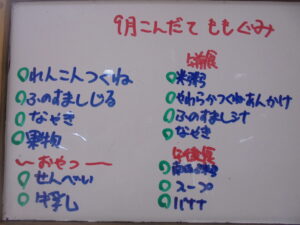 9月こんだて ももぐみ
れんこんつくね
ふのすましじる
なやき
果物
〜おやつ〜
せんべい
牛乳
午前食
米粥
やわらかつくねあんかけ
ふのすまし汁
なやき
午後食
スープ
バナナ